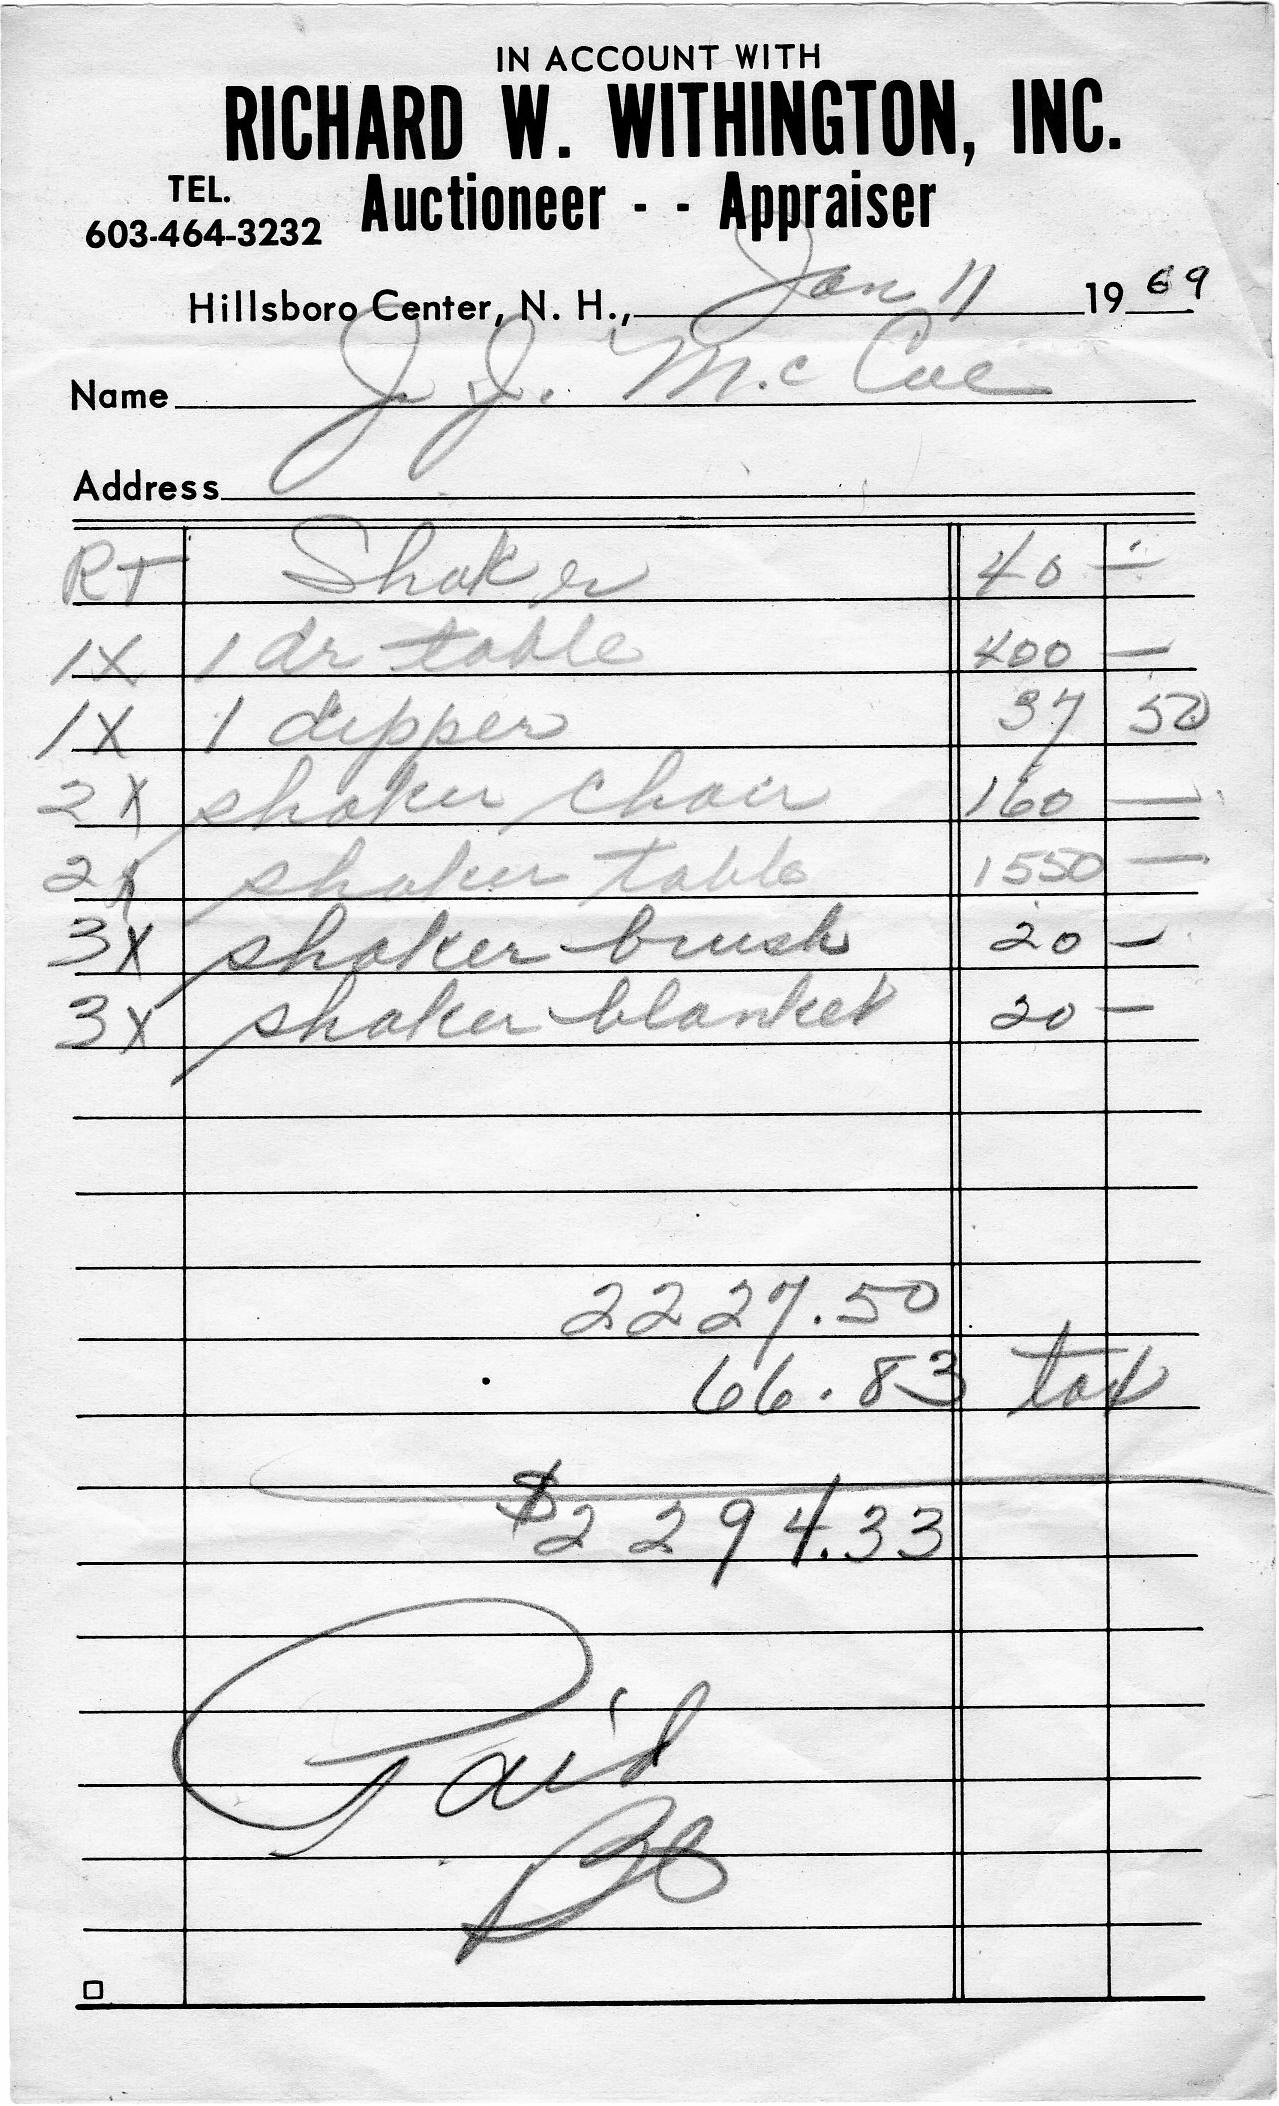 IN ACCOUNT WITH
RICHARD W. WITHINGTON, INC.
TEL. Auctioneer - - Appraiser
603-464-3232
Hillsboro Center, N. H., Jan 11 1969
Name J. J. Mc Cue
Address
RT Shaker 40 —
1X 1 dr table 400 —
1X 1 dipper 37 50
2X shaker chair 160 —
2X shaker table 1550 —
3X shaker brush 20 —
3X shaker blanket 20 —
2227.50
66.83 tax
$2294.33
Paid